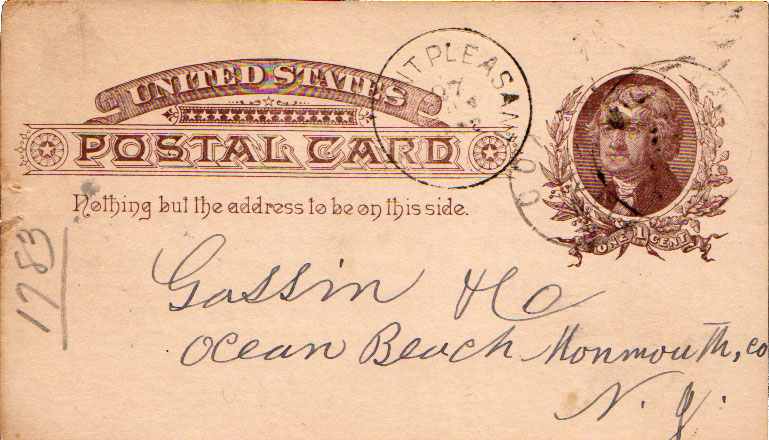 UNITED STATES
POSTAL CARD
Nothing but the address to be on this side.
NT PLEASA
ONE 1 CENT
1783
Gassin & Co
Ocean Beach Monmouth, co
N. J.